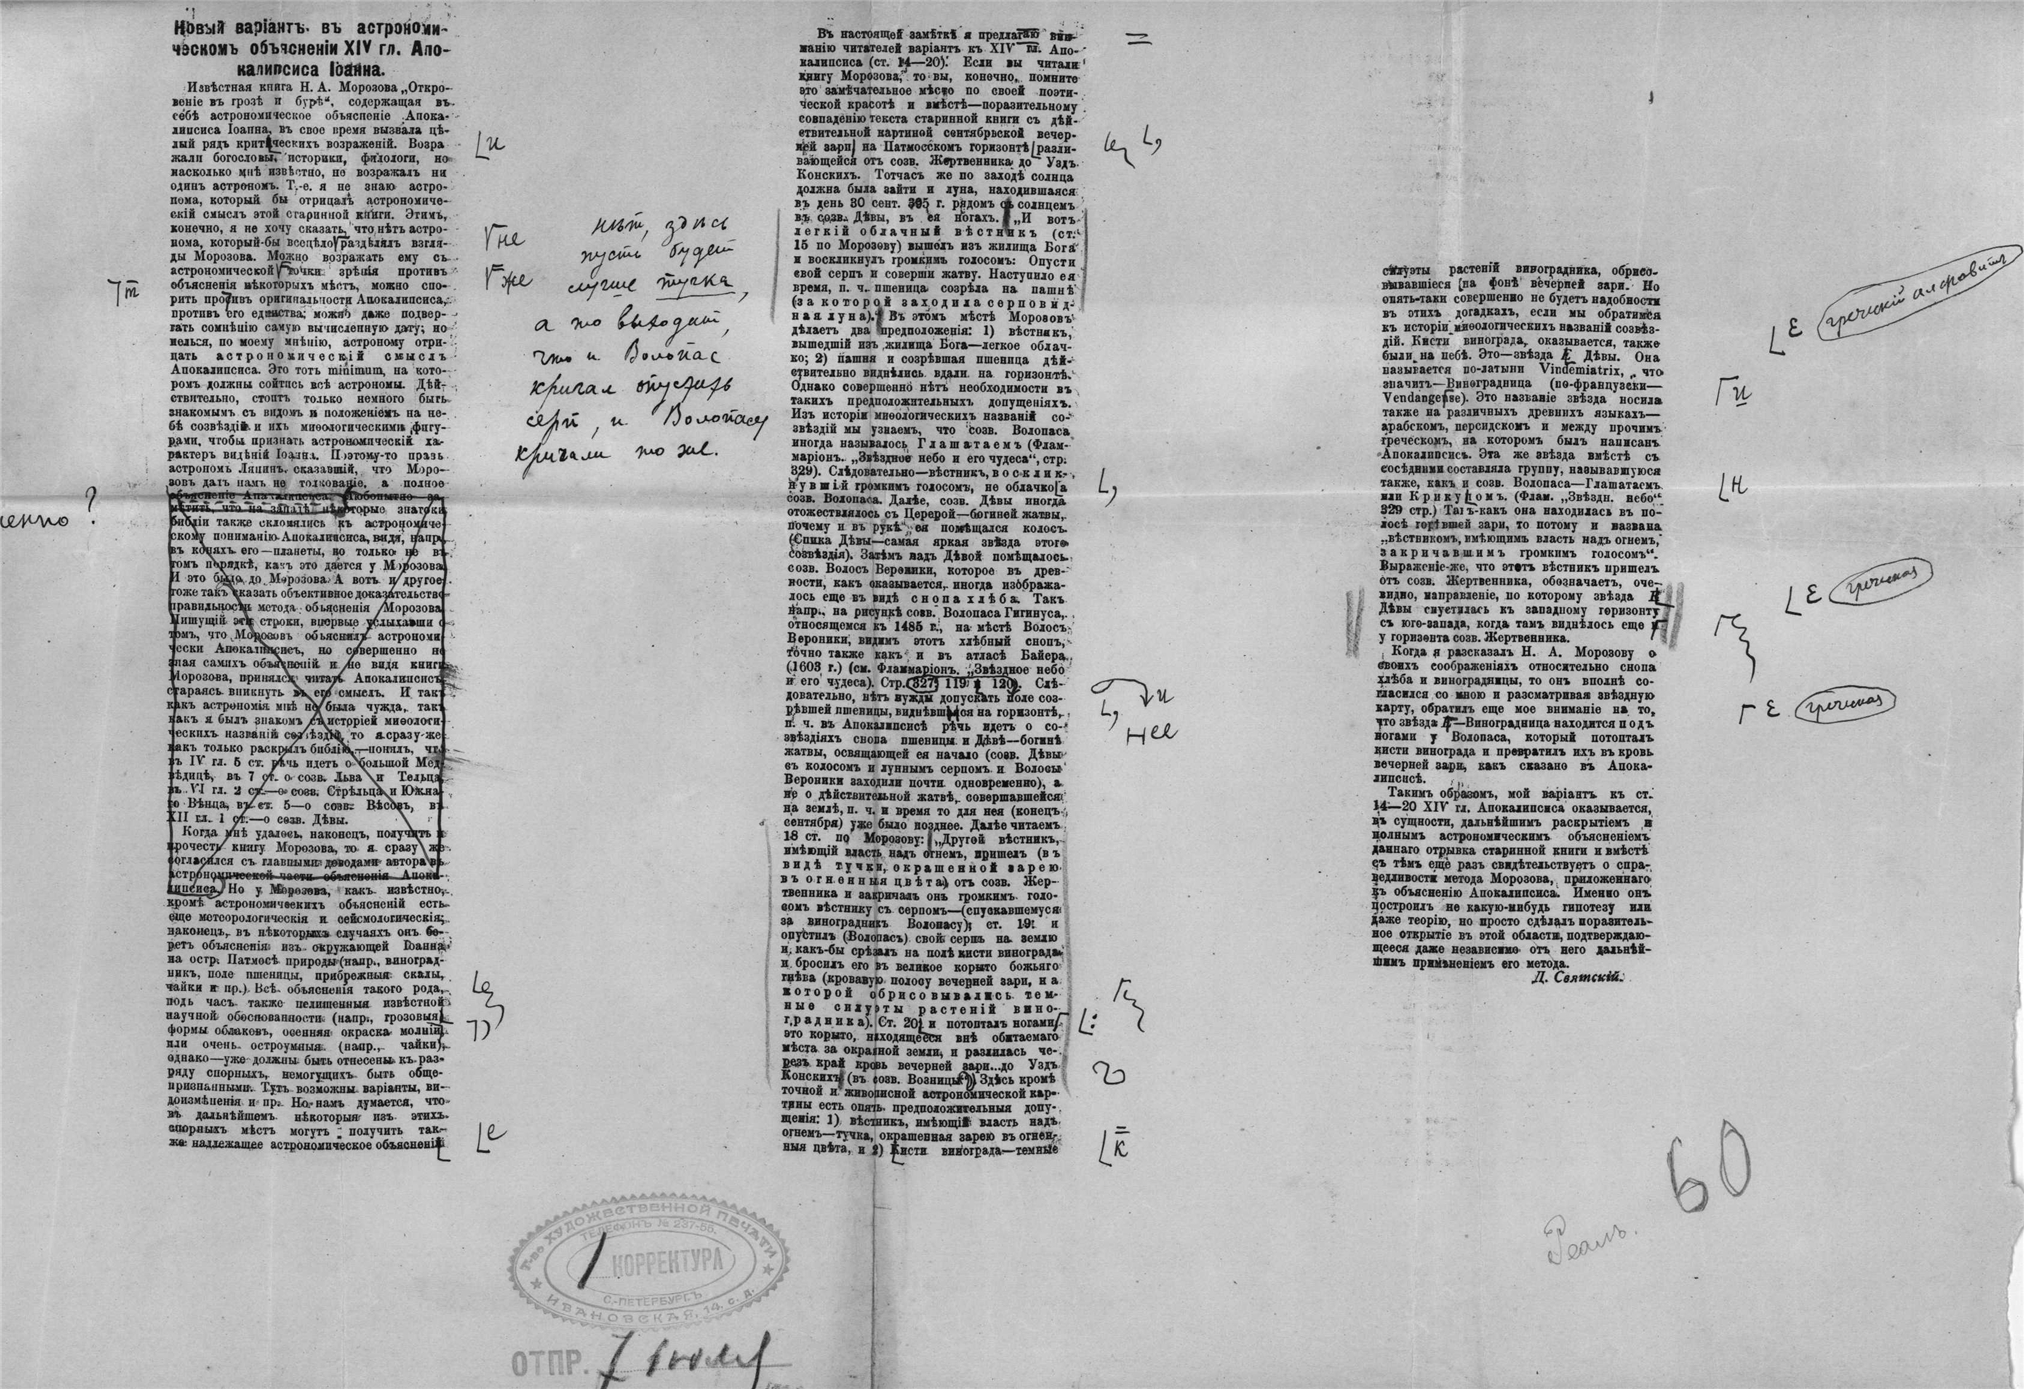 Новый варіантъ въ астрономи-
ческомъ объясненіи XIV гл. Апо-
калипсиса Іоанна.
Извѣстная книга Н. А. Морозова „Откро-
веніе въ грозѣ и бурѣ“, содержащая въ
себѣ астрономическое объясненіе Апока-
липсиса Іоанна, въ свое время вызвала цѣ-
лый рядъ критическихъ возраженій. Возра
жали богословы, историки, филологи, но
насколько мнѣ извѣстно, не возражалъ ни
одинъ астрономъ. Т.-е. я не знаю астро-
нома, который бы отрицалъ астрономиче-
скій смыслъ этой старинной книги. Этимъ,
конечно, я не хочу сказать, что нѣтъ астро-
нома, который-бы всецѣло раздѣлялъ взгля-
ды Морозова. Можно возражать ему съ
астрономической точки зрѣнія противъ
объясненія нѣкоторыхъ мѣстъ, можно спо-
рить противъ оригинальности Апокалипсиса,
противъ его единства; можно даже подвер-
гать сомнѣнію самую вычисленную дату; но
нельзя, по моему мнѣнію, астроному отри-
цать астрономическій смыслъ
Апокалипсиса. Это тотъ minimum, на кото-
ромъ должны сойтись всѣ астрономы. Дѣй-
ствительно, стоитъ только немного быть
знакомымъ съ видомъ и положеніемъ на не-
бѣ созвѣздій и ихъ миѳологическими фигу-
рами, чтобы признать астрономическій ха-
рактеръ видѣній Іоанна. Поэтому-то правъ
астрономъ Ляпинъ, сказавшій, что Моро-
зовъ далъ намъ не толкованіе, а полное
объясненіе Апокалипсиса. Любопытно за-
мѣтить, что на западѣ нѣкоторые знатоки
библіи также склонялись къ астрономиче-
скому пониманію Апокалипсиса, видя, напр.
въ коняхъ его—планеты, но только не въ
томъ порядкѣ, какъ это дается у Морозова.
И это было до Морозова. А вотъ и другое
тоже такъ сказать объективное доказательство
правильности метода объясненія Морозова.
Пишущій эти строки, впервые услыхавши о
томъ, что Морозовъ объяснилъ астрономи
чески Апокалипсисъ, но совершенно не
зная самихъ объясненій и не видя книги
Морозова, принялся читать Апокалипсисъ
стараясь вникнуть въ его смыслъ. И такъ
какъ астрономія мнѣ не была чужда, такъ
какъ я былъ знакомъ съ исторіей миѳологи-
ческихъ названій созвѣздій, то я сразу-же
какъ только раскрылъ библію,—понялъ, что
въ IV гл. 5 ст. рѣчь идетъ о большой Мед
вѣдицѣ, въ 7 ст. о созв. Льва и Тельца
въ VI гл. 2 ст.—о созв. Стрѣльца и Южна-
го Вѣнца, въ ст. 5—о созв. Вѣсовъ, въ
XII гл. 1 ст.—о созв. Дѣвы.
Когда мнѣ удалось, наконецъ, получить и
прочесть книгу Морозова, то я сразу же
согласился съ главными доводами автора въ
астрономической части объясненія Апока-
липсиса. Но у Морозова, какъ извѣстно,
кромѣ астрономическихъ объясненій есть
еще метеорологическія и сейсмологическія;
наконецъ, въ нѣкоторыхъ случаяхъ онъ бе-
ретъ объясненія изъ окружающей Іоанна
на остр. Патмосѣ природы (напр., виноград-
никъ, поле пшеницы, прибрежныя скалы,
чайки и пр.). Всѣ объясненія такого рода,
подъ часъ также нелишенныя извѣстной
научной обоснованности (напр., грозовыя
формы облаковъ, осенняя окраска молніи)
или очень остроумныя (напр., чайки),
однако—уже должны быть отнесены къ раз-
ряду спорныхъ, немогущихъ быть обще-
признанными. Тутъ возможны варіанты, ви-
доизмѣненія и пр. Но намъ думается, что
въ дальнѣйшемъ нѣкоторыя изъ этихъ
спорныхъ мѣстъ могутъ получить так-
же надлежащее астрономическое объясненіи
7т
?
⌊и
не
же
нѣт, здѣсь
пусть будет
лучше тучка,
а то выходит,
что и Волопас
кричал опустить
серп, и Волопасу
кричали то же.
⌊е
Въ настоящей замѣткѣ я предлагаю вни-
манію читателей варіантъ къ XIV гл. Апо-
калипсиса (ст. 14—20). Если вы читали
книгу Морозова, то вы, конечно, помните
это замѣчательное мѣсто по своей поэти-
ческой красотѣ и вмѣстѣ—поразительному
совпаденію текста старинной книги съ дѣй-
ствительной картиной сентябрьской вечер-
ней зари на Патмосскомъ горизонтѣ разли-
вающейся отъ созв. Жертвенника до Уздъ
Конскихъ. Тотчасъ же по заходѣ солнца
должна была зайти и луна, находившаяся
въ день 30 сент. 395 г. рядомъ съ солнцемъ
въ созв. Дѣвы, въ ея ногахъ. „И вотъ
легкій облачный вѣстникъ (ст.
15 по Морозову) вышелъ изъ жилища Бога
и воскликнулъ громкимъ голосомъ: Опусти
свой серпъ и соверши жатву. Наступило ея
время, п. ч. пшеница созрѣла на пашнѣ
(за которой заходила серповид-
ная луна). Въ этомъ мѣстѣ Морозовъ
дѣлаетъ два предположенія: 1) вѣстникъ,
вышедшій изъ жилища Бога—легкое облач-
ко; 2) пашня и созрѣвшая пшеница дѣй-
ствительно виднѣлись вдали на горизонтѣ.
Однако совершенно нѣтъ необходимости въ
такихъ предположительныхъ допущеніяхъ.
Изъ исторіи миѳологическихъ названій со-
звѣздій мы узнаемъ, что созв. Волопаса
иногда называлось Глашатаемъ (Флам-
маріонъ. „Звѣздное небо и его чудеса“, стр.
329). Слѣдовательно—вѣстникъ, восклик-
нувшій громкимъ голосомъ, не облачко а
созв. Волопаса. Далѣе, созв. Дѣвы иногда
отожествлялось съ Церерой—богиней жатвы,
почему и въ рукѣ ея помѣщался колосъ.
(Спика Дѣвы—самая яркая звѣзда этого
созвѣздія). Затѣмъ надъ Дѣвой помѣщалось
созв. Волосъ Вероники, которое въ древ-
ности, какъ оказывается, иногда изобража-
лось еще въ видѣ снопа хлѣба. Такъ
напр., на рисункѣ созв. Волопаса Гигинуса,
относящемся къ 1485 г., на мѣстѣ Волосъ
Вероники, видимъ этотъ хлѣбный снопъ,
точно также какъ и въ атласѣ Байера
(1603 г.) (см. Фламмаріонъ. „Звѣздное небо
и его чудеса). Стр. 327, 119 и 120. Слѣ-
довательно, нѣтъ нужды допускать поле соз-
рѣвшей пшеницы, виднѣвшися на горизонтѣ,
п. ч. въ Апокалипсисѣ рѣчь идетъ о со-
звѣздіяхъ снопа пшеницы и Дѣвѣ—богинѣ
жатвы, освящающей ея начало (созв. Дѣвы
съ колосомъ и луннымъ серпомъ и Волосы
Вероники заходили почти одновременно), а
не о дѣйствительной жатвѣ, совершавшейся
на землѣ, п. ч. и время то для нея (конецъ
сентября) уже было позднее. Далѣе читаемъ
18 ст. по Морозову: „Другой вѣстникъ,
имѣющій власть надъ огнемъ, пришелъ (въ
видѣ тучки, окрашенной зарею
въ огненныя цвѣта) отъ созв. Жер-
твенника и закричалъ онъ громкимъ голо-
сомъ вѣстнику съ серпомъ—(спускавшемуся
за виноградникъ Волопасу); ст. 19: и
опустилъ (Волопасъ) свой серпъ на землю
и какъ-бы срѣзалъ на полѣ кисти винограда
и бросилъ его въ великое корыто божьяго
гнѣва (кровавую полосу вечерней зари, на
которой обрисовывались тем-
ные силуэты растеній вино-
градника). Ст. 20: и потопталъ ногами
это корыто, находящееся внѣ обитаемаго
мѣста за окраиной земли, и разлилась че-
резъ край кровь вечерней зари...до Уздъ
Конскихъ (въ созв. Возницы“). Здѣсь кромѣ
точной и живописной астрономической кар-
тины есть опять предположительныя допу-
щенія: 1) вѣстникъ, имѣющій власть надъ
огнемъ—тучка, окрашенная зарею въ огнен-
ныя цвѣта, и 2) Кисти винограда—темные
⌊,
⌊,
и
нее
⌊:
⌊к
силуэты растеній виноградника, обрисо-
вывавшіеся на фонѣ вечерней зари. Но
опять-таки совершенно не будетъ надобности
въ этихъ догадкахъ, если мы обратимся
къ исторіи миѳологическихъ названій созвѣз-
дій. Кисти винограда, оказывается, также
были на небѣ. Это—звѣзда Дѣвы. Она
называется по-латыни Vindemiatrix, что
значитъ—Виноградница (по-французски—
Vendangeuse). Это названіе звѣзда носила
также на различныхъ древнихъ языкахъ—
арабскомъ, персидскомъ и между прочимъ
греческомъ, на которомъ былъ написанъ
Апокалипсисъ. Эта же звѣзда вмѣстѣ съ
сосѣдними составляла группу, называвшуюся
также, какъ и созв. Волопаса—Глашатаемъ
или Крикуномъ. (Флам. „Звѣздн. небо“
329 стр.) Такъ-какъ она находилась въ по-
лосѣ горѣвшей зари, то потому и названа
„вѣстникомъ, имѣющимъ власть надъ огнемъ,
закричавшимъ громкимъ голосомъ“.
Выраженіе-же, что этотъ вѣстникъ пришелъ
отъ созв. Жертвенника, обозначаетъ, оче-
видно, направленіе, по которому звѣзда
Дѣвы спустилась къ западному горизонту
съ юго-запада, когда тамъ виднѣлось еще и
у горизонта созв. Жертвенника.
Когда я разсказалъ Н. А. Морозову о
своихъ соображеніяхъ относительно снопа
хлѣба и виноградницы, то онъ вполнѣ со-
гласился со мною и разсматривая звѣздную
карту, обратилъ еще мое вниманіе на то,
что звѣзда —Виноградница находится подъ
ногами у Волопаса, который потопталъ
кисти винограда и превратилъ ихъ въ кровь
вечерней зари, какъ сказано въ Апока-
липсисѣ.
Такимъ образомъ, мой варіантъ къ ст.
14—20 XIV гл. Апокалипсиса оказывается,
въ сущности, дальнѣйшимъ раскрытіемъ и
полнымъ астрономическимъ объясненіемъ
даннаго отрывка старинной книги и вмѣстѣ
съ тѣмъ еще разъ свидѣтельствуетъ о спра-
ведливости метода Морозова, приложеннаго
къ объясненію Апокалипсиса. Именно онъ
построилъ не какую-нибудь гипотезу или
даже теорію, но просто сдѣлалъ поразитель-
ное открытіе въ этой области, подтверждаю-
щееся даже независимо отъ него дальнѣй-
шимъ примѣненіемъ его метода.
Д. Святскій.
⌊ε греческій алфавитъ
и
⌊н
⌊ε греческая
ε греческая
60
Т-во ХУДОЖЕСТВЕННОЙ ПЕЧАТИ
ТЕЛЕФОНЪ № 237-56.
1 КОРРЕКТУРА
С.-ПЕТЕРБУРГЪ
ИВАНОВСКАЯ, 14. с. д.
ОТПР. 7